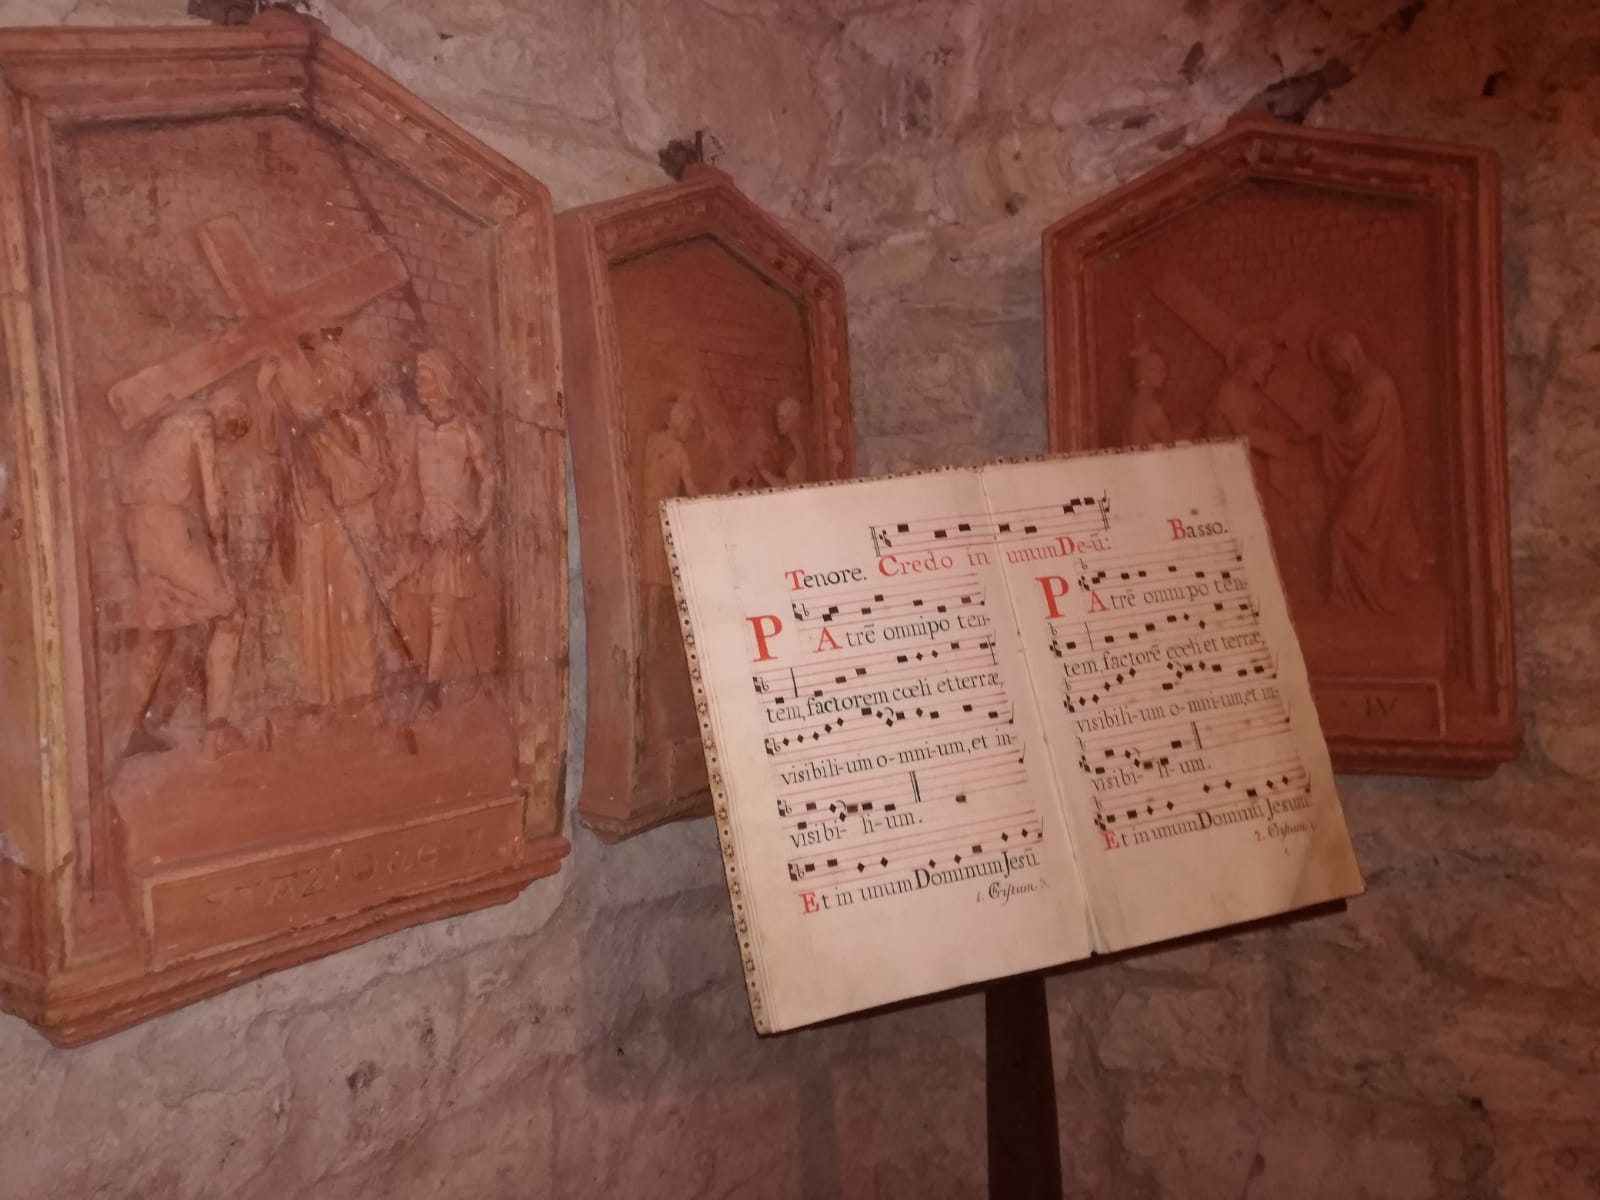 STAZIONE II
IV
Credo in unum De-ū:
Tenore.
PAtrē omnipo ten-
tem, factorem cœli et terræ,
visibili-um o-mni-um, et in-
visibi- li-um.
Et in unum Dominum Jesū
1. Cristum 3.
Basso.
PAtrē omnipo ten-
tem, factorē cœli et terræ,
visibili-um o-mni-um, et in-
visibi- li-um.
Et in unum Dominū Jesum
2. Cristum